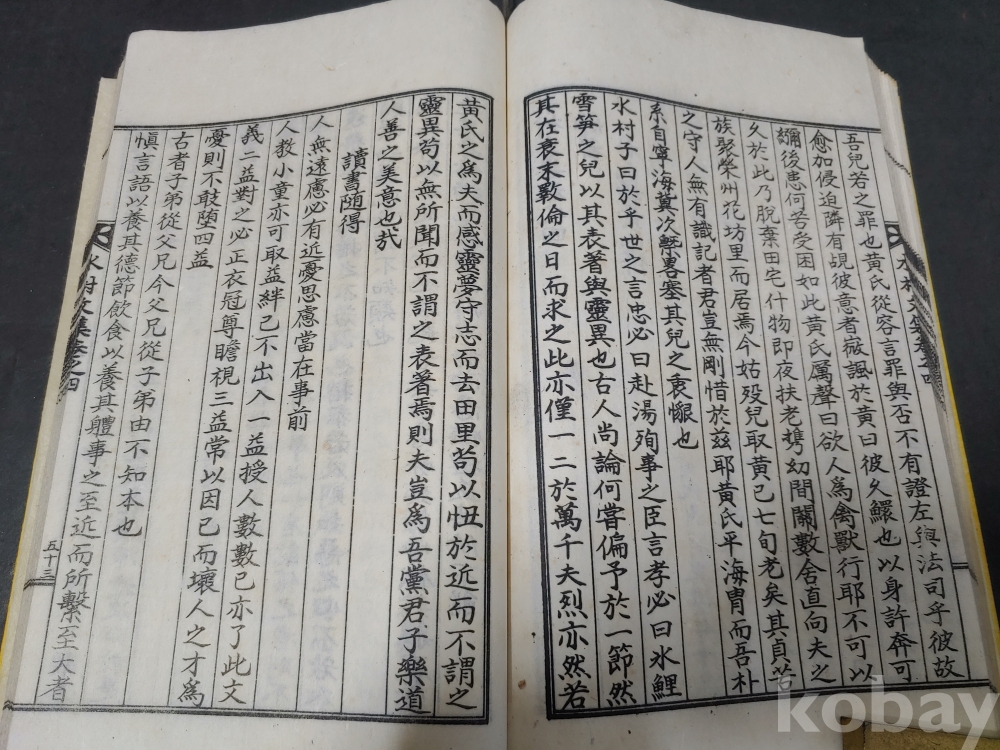 吾兒若之罪也黃氏從容言罪與否不有證左與法司乎彼故
愈加侵迫隣有覘彼意者微諷於黃曰彼久鰥也以身許奔可
彌後患何苦受困如此黃氏厲聲曰欲人爲禽獸行耶不可以
久於此乃脫棄田宅什物即夜扶老携幼間關數舍直向夫之
族娶榮州花坊里而居焉今姑歿兒取黃已七旬老矣其貞苦
之守人無有識記者君豈無剛惜於玆耶黃氏平海胄而吾朴
系自寧海冀次槩畧塞其兒之衷懇也
水村子曰於乎世之言忠必曰赴湯殉事之臣言孝必曰氷鯉
雪笋之兒以其表著與靈異也古人尚論何嘗偏予於一節然
其在衰末斁倫之日而求之此亦僅一二於萬千夫烈亦然若
黃氏之爲夫而感靈夢守志而去田里苟以忸於近而不謂之
靈異苟以無所聞而不謂之表著焉則夫豈爲吾黨君子樂道
人善之美意也㢤
讀書随得
人無遠慮必有近憂思慮當在事前
人教小童亦可取益絆己不出入一益授人數數己亦了此文
義二益對之必正衣冠尊瞻視三益常以因己而壞人之才爲
憂則不敢堕四益
古者子弟從父兄今父兄從子弟由不知本也
愼言語以養其德節飮食以養其軆事之至近而所繫至大者
水村文集卷之四
五十三
kobay